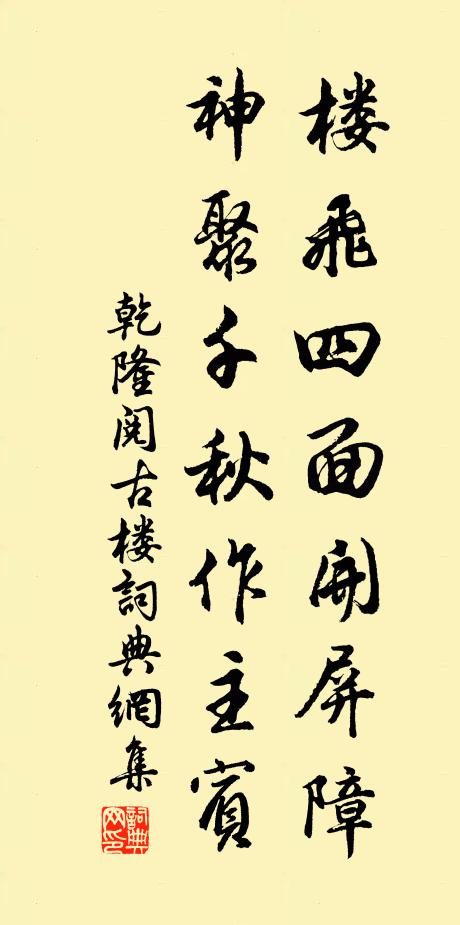 楼飛四面開屏障
神聚千秋作主賓
乾隆阅古楼詞典網集
詞典网印